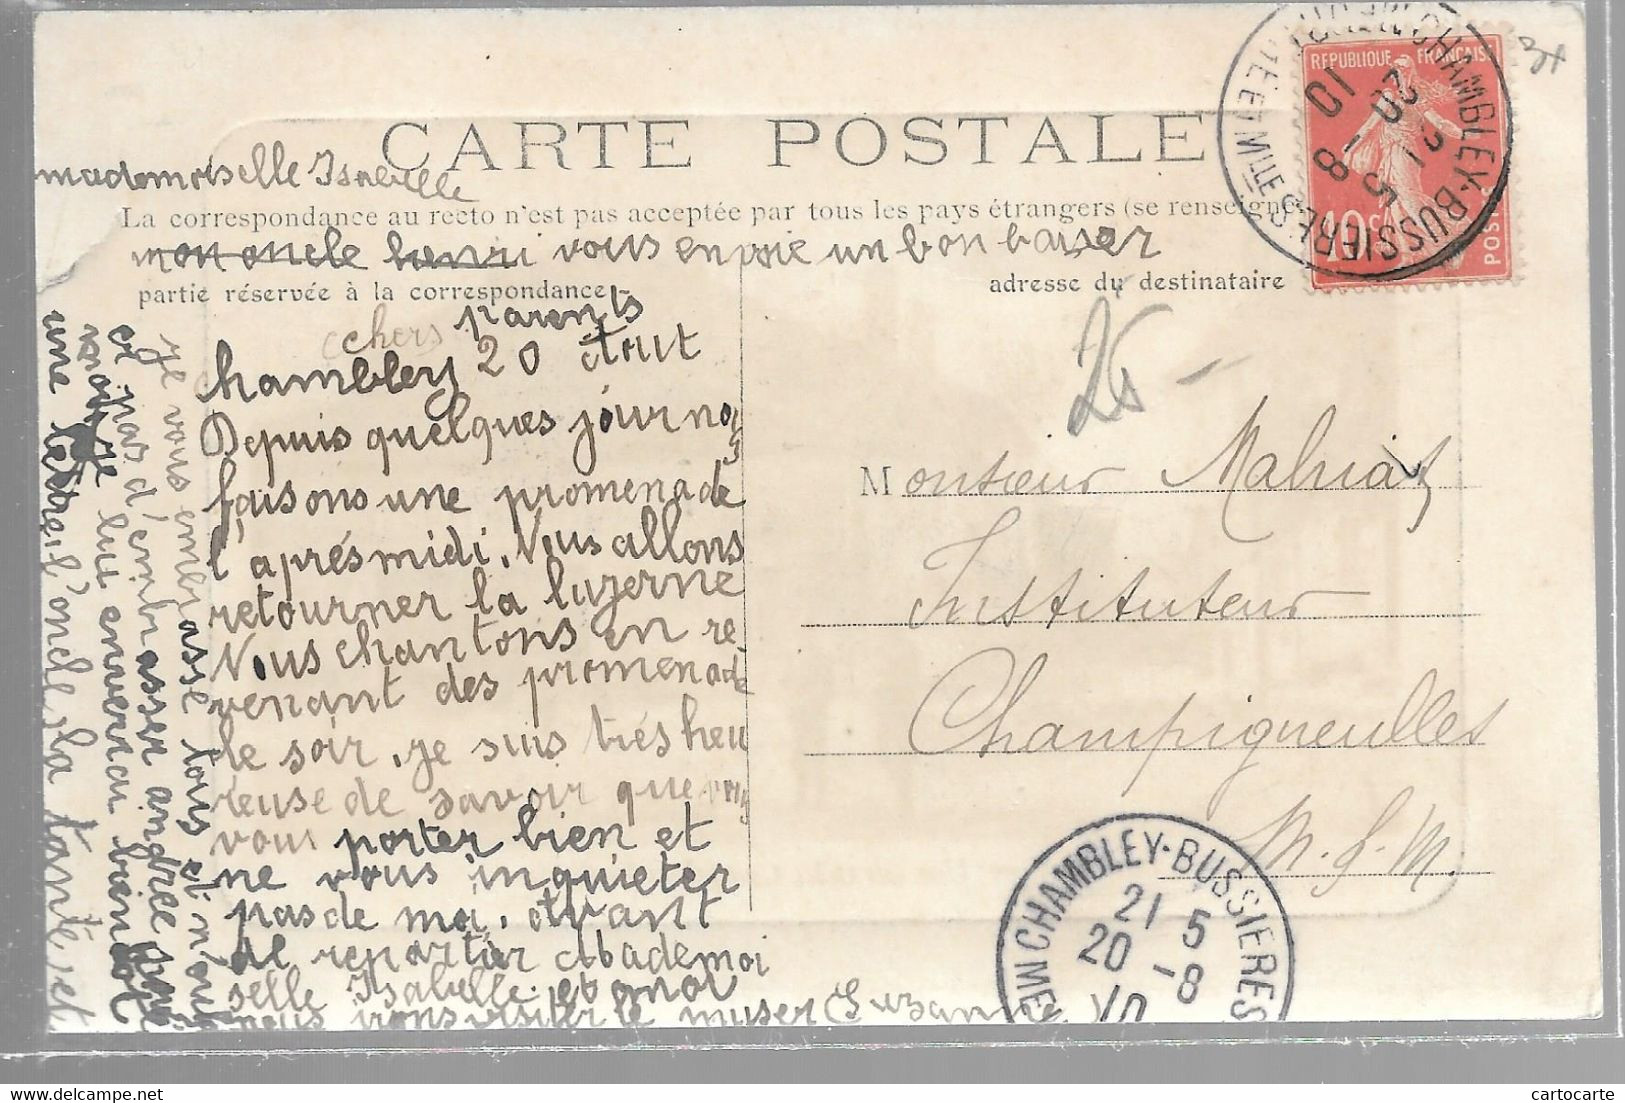 CARTE POSTALE
mademoiselle Isabelle
La correspondance au recto n'est pas acceptée par tous les pays étrangers (se renseigne
mon oncle henri vous envoie un bon baiser
partie réservée à la correspondance
adresse du destinataire
chers parents
Chambley 20 Aout
Depuis quelques jour nous
faisons une promenade
l'aprés midi. Nous allons
retourner la luzerne
Nous chantons en re
venant des promenade
le soir. je suis trés heu
reuse de savoir que vous
vous porter bien et
ne vous inquieter
pas de moi. Avant
de repartir Mademoi
selle Isabelle et moi
nous irons visiter le muser (Suzanne)
je vous embrasse tous et n'ou
et pas d'embrasser andrée
je lui enverrai bientot
une lettre. l'oncle la tante et
Monsieur Malriat
Instituteur
Champigneulles
M. & M.
25 -
REPUBLIQUE FRANÇAISE
10c
POSTES
CHAMBLEY-BUSSIERES
MEURTHE ET MLLE
21 5
20 -8
10
CHAMBLEY-BUSSIERES
21 5
20 -8
10
cartocarte